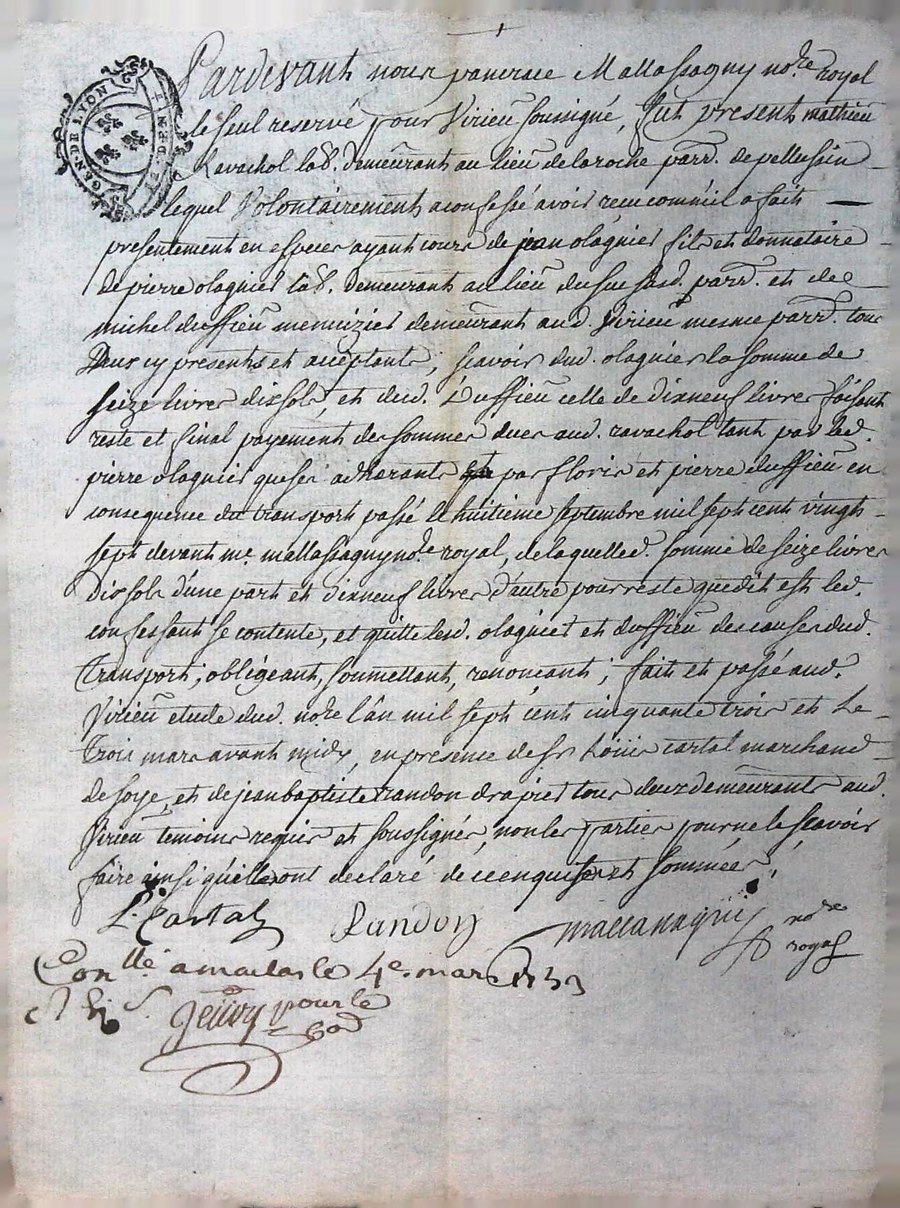 GEN. DE LYON
Pardevant nous pancrace Mallassagny no.re royal
le seul reservé pour Virieu soussigné, fut present mathieu
Ravachol lab.r demeurant au lieu de la roche parr.e de pellussin
lequel Volontairement a confessé avoir receu comme il a fait
presentement en especes ayant cours de jean olagnier fils et donnataire
de pierre olagnier lab.r demeurant au lieu du parr.e et de
michel duffieu menuizier demeurant aud. Virieu mesme parr.e tous
deux cy presents et acceptants, scavoir dud. olagnier la somme de
seize livres dix sols, et dud. Duffieu celle de dixneuf livres faisant
reste et final payement des sommes dues aud. ravachol tant par led.
pierre olagnier que ses adherants par floris et pierre duffieu en
consequence du transport passé le huitieme septembre mil sept cent vingt
sept devant m.e mallassagny no.re royal, de laquelle d. somme de seize livres
dix sols d'une part et dixneuf livres d'autre pour reste que dit est led.
confessant se contente, et quitte lesd. olagnier et duffieu des causes dud.
Transport, obligeant, soumettant, renonçant; fait et passé aud.
Virieu etude dud. no.re l'an mil sept cent cinquante trois et Le
Trois mars avant midy, en presence de s.r Loüis cartal marchand
de soye, et de jean baptiste randon drapier tous deux demeurants aud.
Virieu temoins requis et soussignés, non les parties pour ne le scavoir
faire ainsi qu'elles ont declaré de ce enquises et sommées,
L. Cartal Randon mallassagny no.re
royal
Con.llé a malas le 4e. mars 1753
Jeüvy pour le